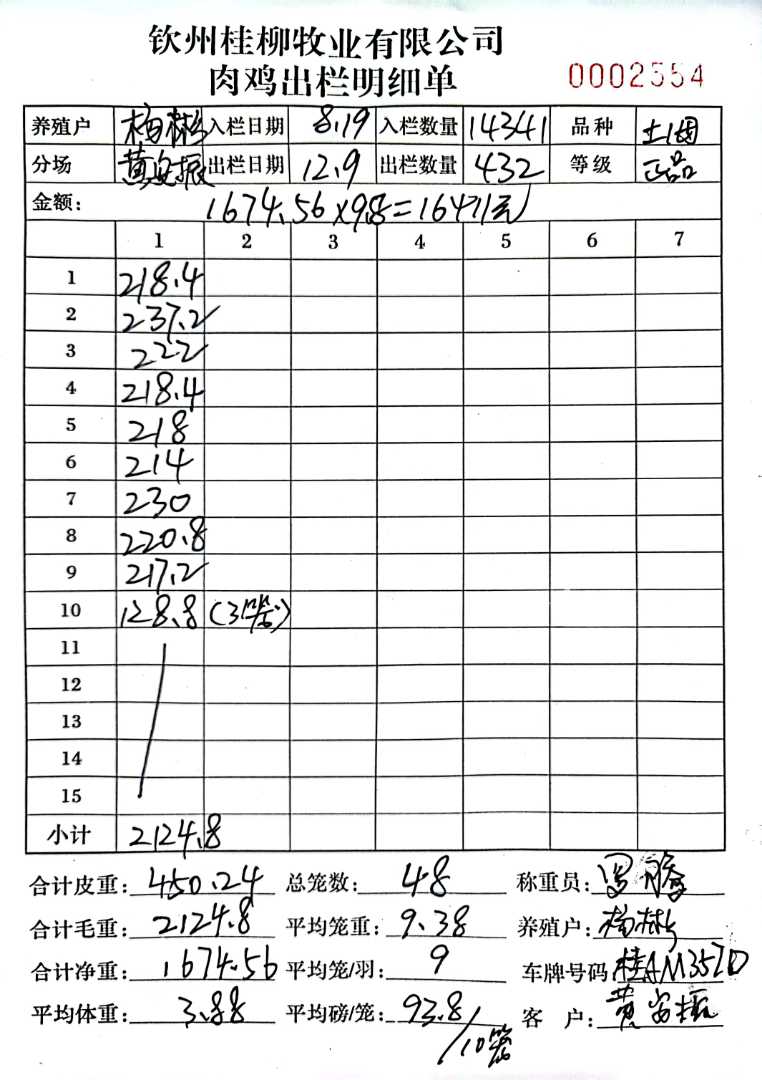 钦州桂柳牧业有限公司
肉鸡出栏明细单 0002554
养殖户 杨彬 入栏日期 8.19 入栏数量 14341 品种 土1
分场 黄安振 出栏日期 12.9 出栏数量 432 等级 正品
金额: 1674.56×9.8=16411元
1 2 3 4 5 6 7
1 218.4
2 237.2
3 222
4 218.4
5 218
6 214
7 230
8 220.8
9 217.2
10 128.8 (3笼)
11
12
13
14
15
小计 2124.8
合计皮重: 450.24 总笼数: 48 称重员: 罗腾
合计毛重: 2124.8 平均笼重: 9.38 养殖户: 杨彬
合计净重: 1674.56 平均笼/羽: 9 车牌号码: 桂AM357D
平均体重: 3.88 平均磅/笼: 93.8/10笼 客户: 黄安振